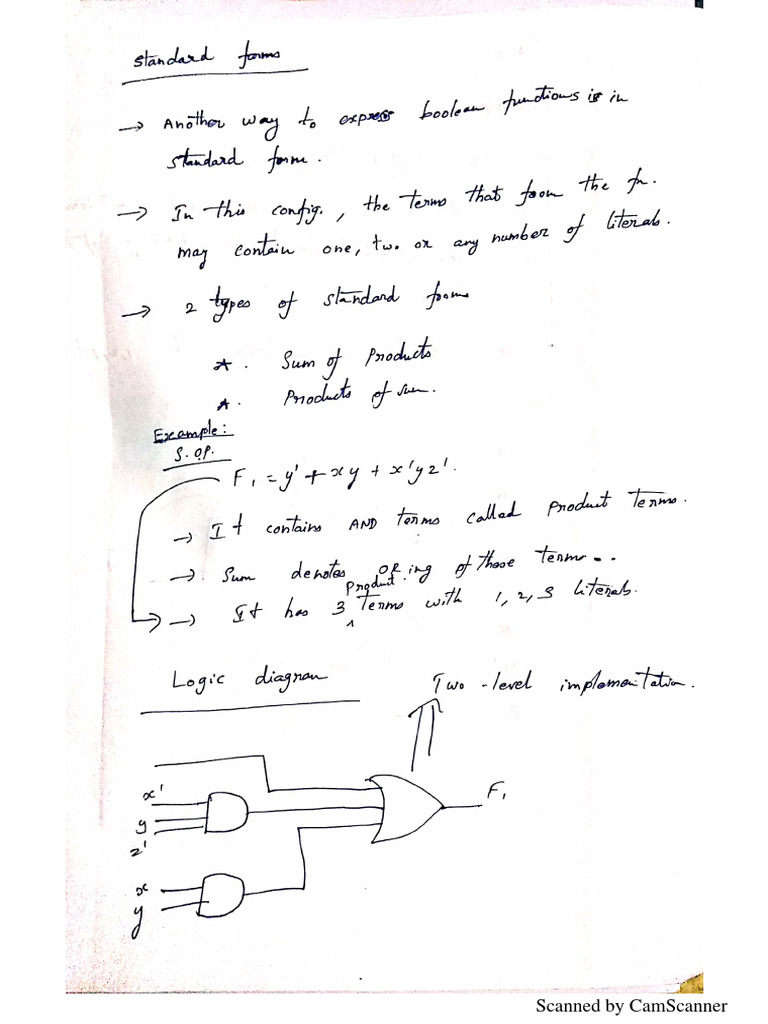 Standard forms
→ Another way to express boolean functions is in
standard form.
→ In this config., the terms that form the fn.
may contain one, two or any number of literals.
→ 2 types of standard forms
*. Sum of Products
*. Products of sum.
Example:
S.O.P.
F₁ = y' + xy + x'yz'.
→ It contains AND terms called Product Terms.
→ Sum denotes ORing of these terms..
→ It has 3 product terms with 1, 2, 3 literals.
Logic diagram
Two-level implementation.
x'
y
z'
F₁
x
y
Scanned by CamScanner